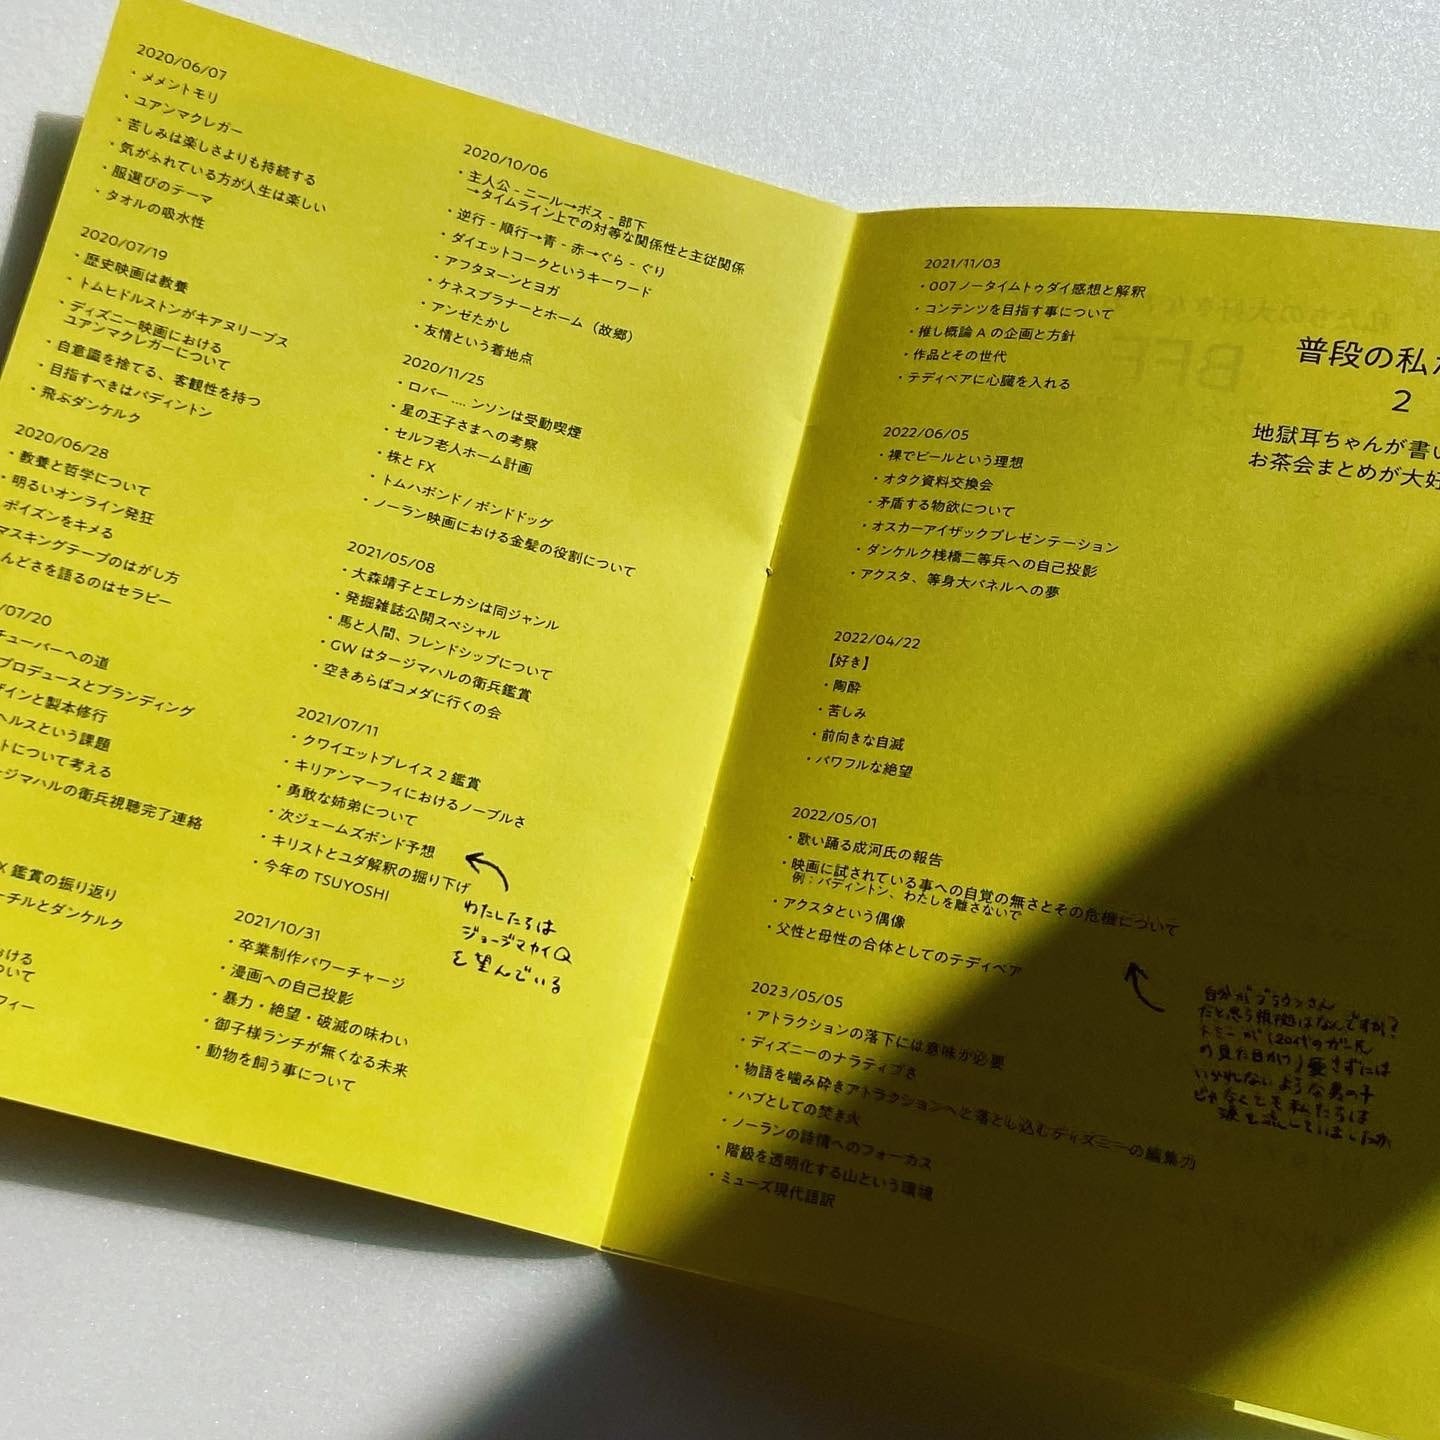 2020/06/07
・メメントモリ
・ユアンマクレガー
・苦しみは楽しさよりも持続する
・気がふれている方が人生は楽しい
・服選びのテーマ
・タオルの吸水性
2020/07/19
・歴史映画は教養
・トムヒドルストンがキアヌリーブス
・ディズニー映画における
ユアンマクレガーについて
・自意識を捨てる、客観性を持つ
・目指すべきはパディントン
・飛ぶダンケルク
2020/06/28
・教養と哲学について
・明るいオンライン発狂
ポイズンをキメる
マスキングテープのはがし方
んどさを語るのはセラピー
/07/20
チューバーへの道
プロデュースとブランディング
ザインと製本修行
ヘルスという課題
トについて考える
ージマハルの衛兵視聴完了連絡
X 鑑賞の振り返り
ーチルとダンケルク
おける
ついて
フィー
2020/10/06
・主人公 - ニール→ボス - 部下
→タイムライン上での対等な関係性と主従関係
・逆行 - 順行→青 - 赤→ぐら - ぐり
・ダイエットコークというキーワード
・アフタヌーンとヨガ
・ケネスブラナーとホーム（故郷）
・アンゼたかし
・友情という着地点
2020/11/25
・ロバー .... ンソンは受動喫煙
・星の王子さまへの考察
・セルフ老人ホーム計画
・株と FX
・トムハボンド / ボンドドッグ
・ノーラン映画における金髪の役割について
2021/05/08
・大森靖子とエレカシは同ジャンル
・発掘雑誌公開スペシャル
・馬と人間、フレンドシップについて
・GW はタージマハルの衛兵鑑賞
・空きあらばコメダに行くの会
2021/07/11
・クワイエットプレイス 2 鑑賞
・キリアンマーフィにおけるノーブルさ
・勇敢な姉弟について
・次ジェームズボンド予想
・キリストとユダ解釈の掘り下げ
・今年の TSUYOSHI
わたしたちは
ジョージマカイQ
を望んでいる
2021/10/31
・卒業制作パワーチャージ
・漫画への自己投影
・暴力・絶望・破滅の味わい
・御子様ランチが無くなる未来
・動物を飼う事について
2021/11/03
・007 ノータイムトゥダイ感想と解釈
・コンテンツを目指す事について
・推し概論 A の企画と方針
・作品とその世代
・テディベアに心臓を入れる
2022/06/05
・裸でビールという理想
・オタク資料交換会
・矛盾する物欲について
・オスカーアイザックプレゼンテーション
・ダンケルク桟橋二等兵への自己投影
・アクスタ、等身大パネルへの夢
2022/04/22
【好き】
・陶酔
・苦しみ
・前向きな自滅
・パワフルな絶望
2022/05/01
・歌い踊る成河氏の報告
・映画に試されている事への自覚の無さとその危機について
例：パディントン、わたしを離さないで
・アクスタという偶像
・父性と母性の合体としてのテディベア
自分がブラウンさん
だと思う根拠はなんですか？
トミーが（20代のガー氏
の見た目かつ）愛さずには
いられないような男の子
じゃなくても私たちは
涙を流していましたか
2023/05/05
・アトラクションの落下には意味が必要
・ディズニーのナラティブさ
・物語を噛み砕きアトラクションへと落とし込むディズニーの編集力
・ハブとしての焚き火
・ノーランの詩情へのフォーカス
・階級を透明化する山という環境
・ミューズ現代語訳
普段の私た
2
地獄耳ちゃんが書い
お茶会まとめが大好